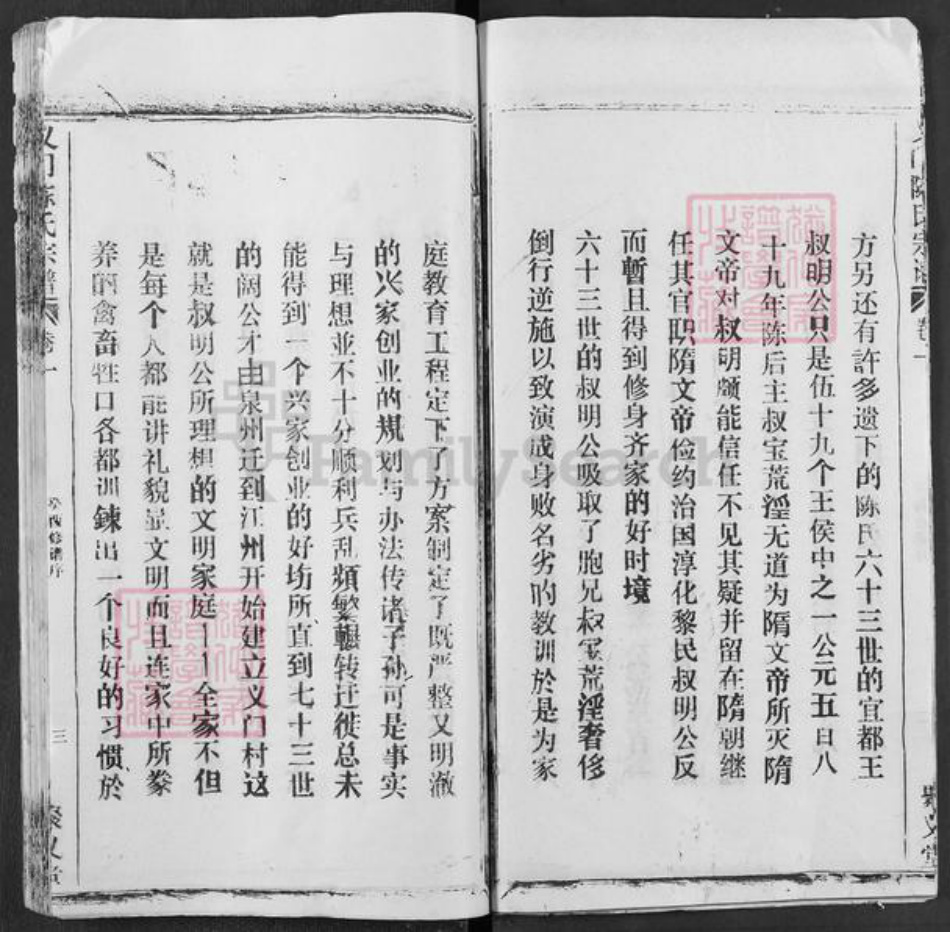 方另还有許多遗下的陈氏六十三世的宜都王
叔明公只是伍十九个王侯中之一公元五百八
十九年陈后主叔宝荒淫无道为隋文帝所灭隋
文帝对叔明颇能信任不见其疑并留在隋朝继
任其官职隋文帝俭约治国淳化黎民叔明公反
而暫且得到修身齐家的好时境
六十三世的叔明公吸取了胞兄叔宝荒淫奢侈
倒行逆施以致演成身败名劣的教训於是为家
义门陈氏宗谱 卷一
聚义堂
庭教育工程定下了方案制定了既严整又明澈
的兴家创业的规划与办法传诸子孙可是事实
与理想並不十分顺利兵乱頻繁輾转迁徙总未
能得到一个兴家创业的好场所直到七十三世
的阔公才由泉州迁到江州开始建立义门村这
就是叔明公所理想的文明家庭——全家不但
是每个人都能讲礼貌显文明而且连家中所豢
养的禽畜牲口各都训鍊出一个良好的习惯於
义门陈氏宗谱 卷一
癸酉修谱序
三
聚义堂
FamilySearch